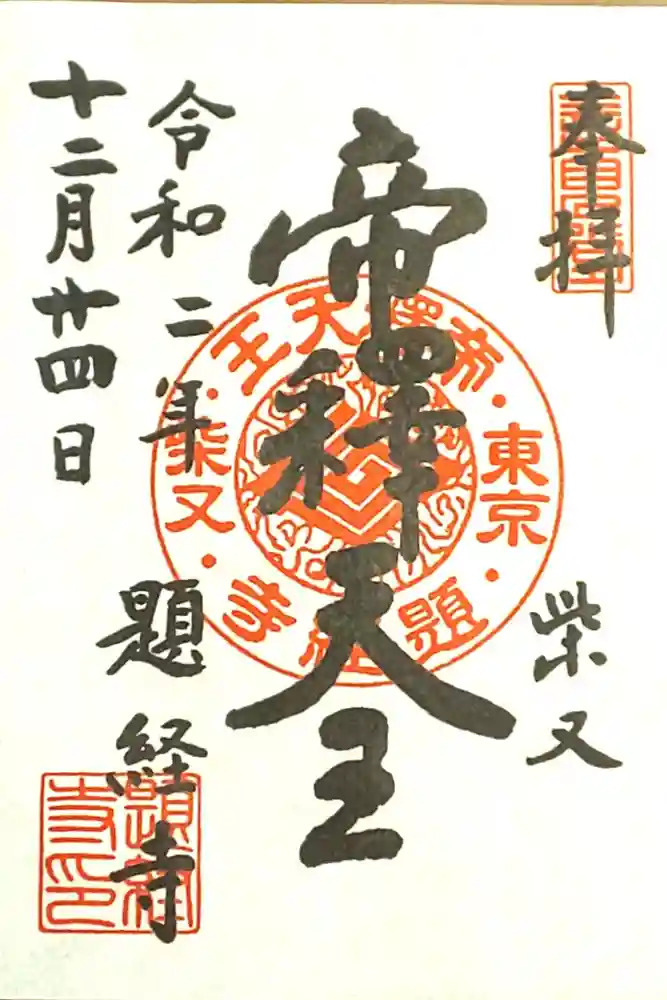 奉拝
柴又
帝釋天王
令和二年
十二月廿四日
題経寺
帝釋天王
東京
柴又
題経寺